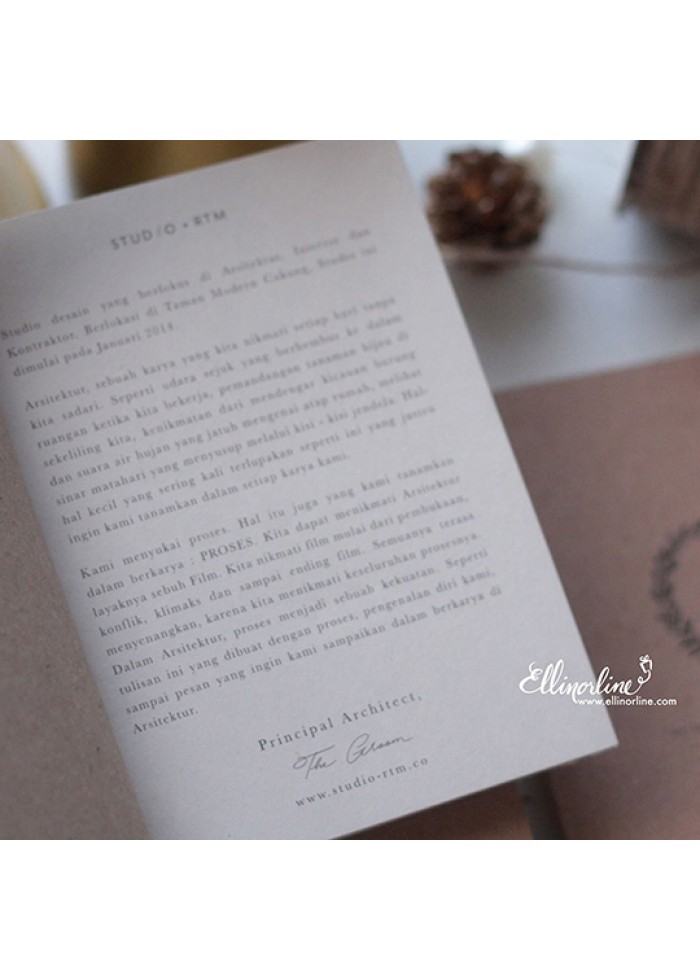 STUDIO • RTM
Studio desain yang berfokus di Arsitektur, Interior dan
Kontraktor. Berlokasi di Taman Modern Cakung, Studio ini
dimulai pada Januari 2014.
Arsitektur, sebuah karya yang kita nikmati setiap hari tanpa
kita sadari. Seperti udara sejuk yang berhembus ke dalam
ruangan ketika kita bekerja, pemandangan tanaman hijau di
sekeliling kita, kenikmatan dari mendengar kicauan burung
dan suara air hujan yang jatuh mengenai atap rumah, melihat
sinar matahari yang menyusup melalui kisi - kisi jendela. Hal-
hal kecil yang sering kali terlupakan seperti ini yang justru
ingin kami tanamkan dalam setiap karya kami.
Kami menyukai proses. Hal itu juga yang kami tanamkan
dalam berkarya : PROSES. Kita dapat menikmati Arsitektur
layaknya sebuh Film. Kita nikmati film mulai dari pembukaan,
konflik, klimaks dan sampai ending film. Semuanya terasa
menyenangkan, karena kita menikmati keseluruhan prosesnya.
Dalam Arsitektur, proses menjadi sebuah kekuatan. Seperti
tulisan ini yang dibuat dengan proses, pengenalan diri kami,
sampai pesan yang ingin kami sampaikan dalam berkarya di
Arsitektur.
Principal Architect,
The Groom
www.studio-rtm.co
Ellinorline
www.ellinorline.com